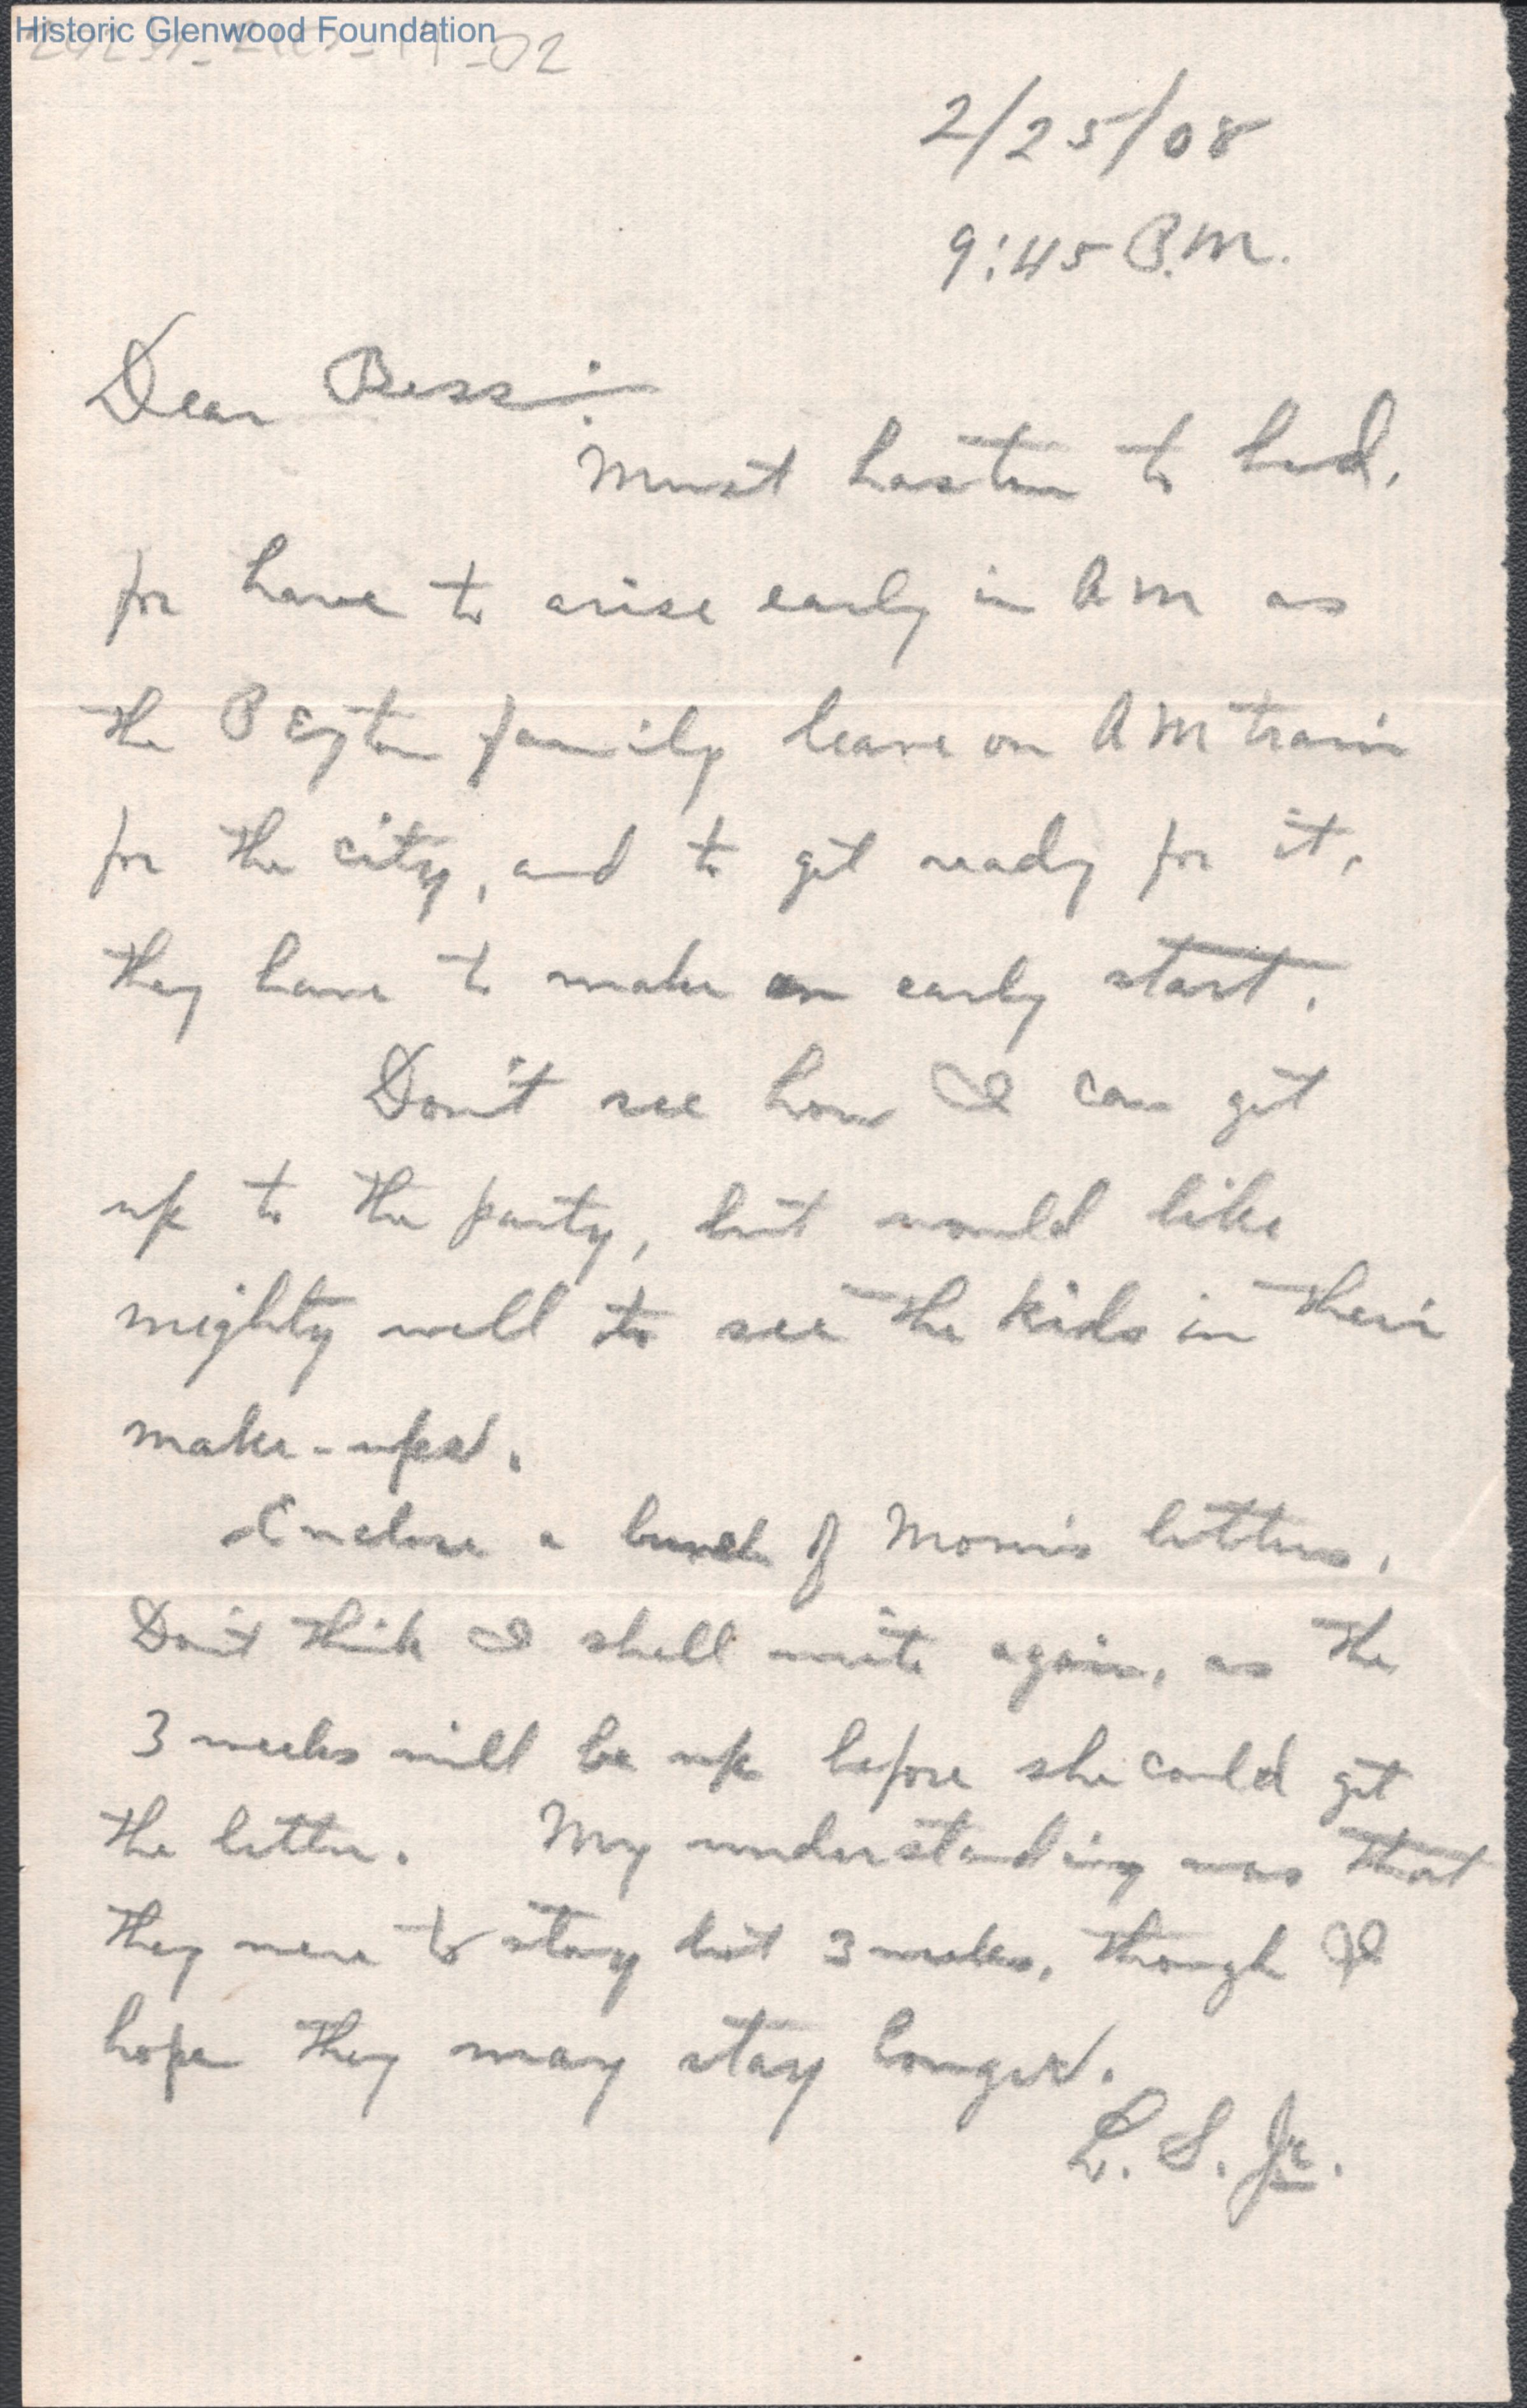 Historic Glenwood Foundation
2/25/08
9:45 P.M.
Dear Bess:—
Must hasten to bed,
for have to arise early in AM as
the Peyton family leave on AM train
for the city, and to get ready for it,
they have to make an early start.
Don't see how I can get
up to the party, but would like
mighty well to see the kids in their
make-ups.
Enclose a bunch of Mom's letters.
Don't think I shall write again, as the
3 weeks will be up before she could get
the letter. My understanding was that
they were to stay but 3 weeks, though I
hope they may stay longer.
L. S. Jr.